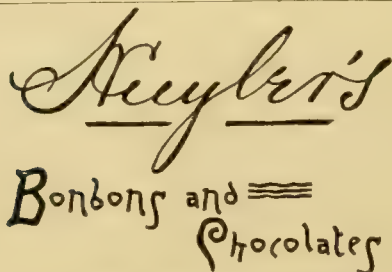 Huyler's
Bonbons and
Chocolates